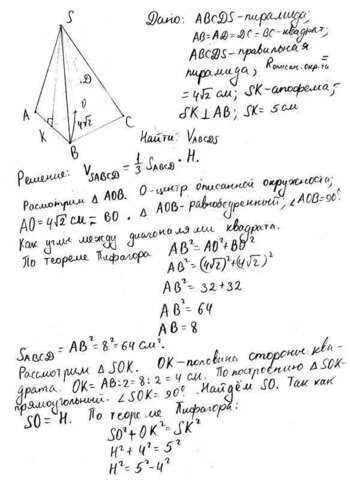 S
Дано: ABCDS-пирамида;
AB=AD=DC=BC-квадрат;
ABCDS-правильная
пирамида, Rописан.окр-та =
= 4√2 см; SK-апофема;
SK⊥AB; SK = 5 см
D
A
O
4√2
K
C
B
Найти: VABCDS
Решение: VSABCD = 1/3 SABCD · H.
Рассмотрим △ AOB. O-центр описанной окружности;
AO=4√2 см = BO. △ AOB-равнобедренный, ∠AOB=90°.
Как углы между диагоналями квадрата.
По теореме Пифагора AB²=AO²+BO²
AB²=(4√2)²+(4√2)²
AB²=32+32
AB²=64
AB=8
SABCD = AB²=8²=64 см².
Рассмотрим △SOK. OK-половина стороны ква-
драта. OK=AB:2=8:2=4 см. По построению △SOK-
прямоугольный. ∠SOK=90°. Найдём SO. Так как
SO=H. По теореме Пифагора:
SO²+OK²=SK²
H²+4²=5²
H²=5²-4²